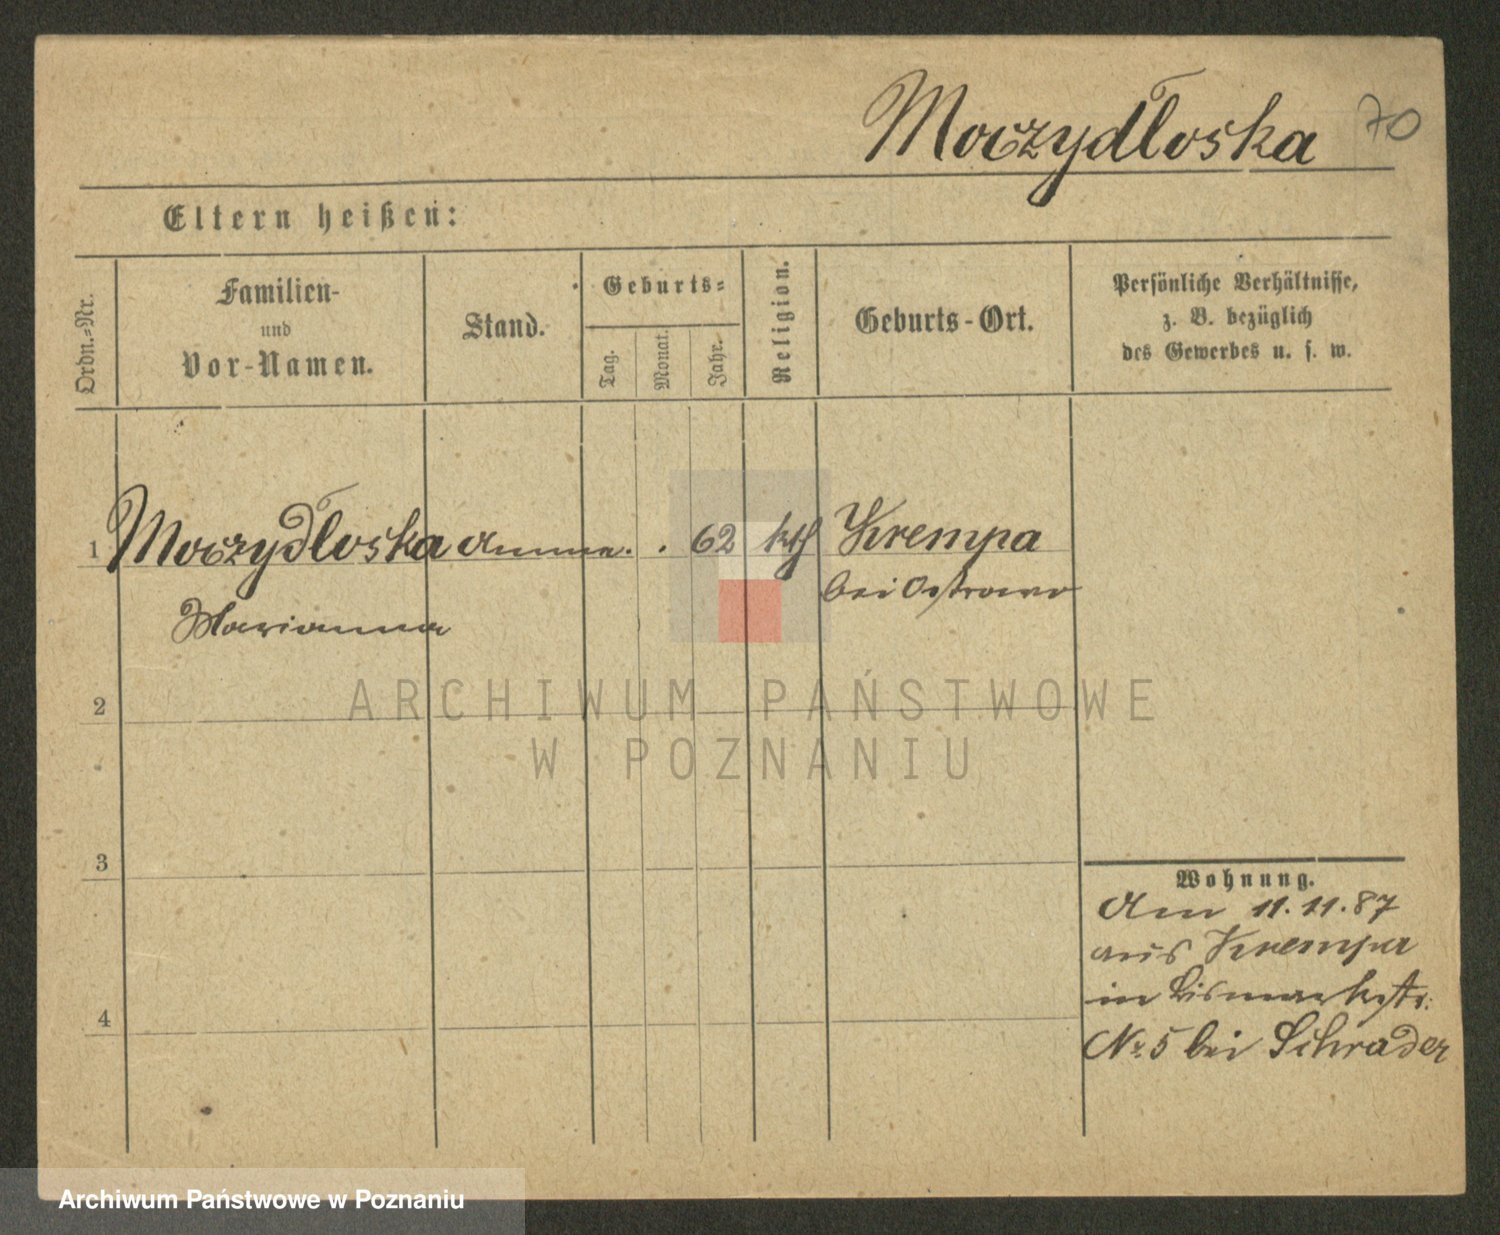 Moczydłoska 70
Eltern heißen:
Ordn.-Nr.
Familien-
und
Vor-Namen.
Stand.
Geburts-
Tag.
Monat.
Jahr.
Religion.
Geburts-Ort.
Persönliche Verhältnisse,
z. B. bezüglich
des Gewerbes u. s. w.
1 Moczydłoska Amme. . 62 kth Krempa
bei Ostrowo
Marianna
ARCHIWUM PAŃSTWOWE
W POZNANIU
2
3
4
Wohnung.
Am 11.11.87
aus Krempa
in Bismarkstr:
Nr. 5 bei Schrader
Archiwum Państwowe w Poznaniu